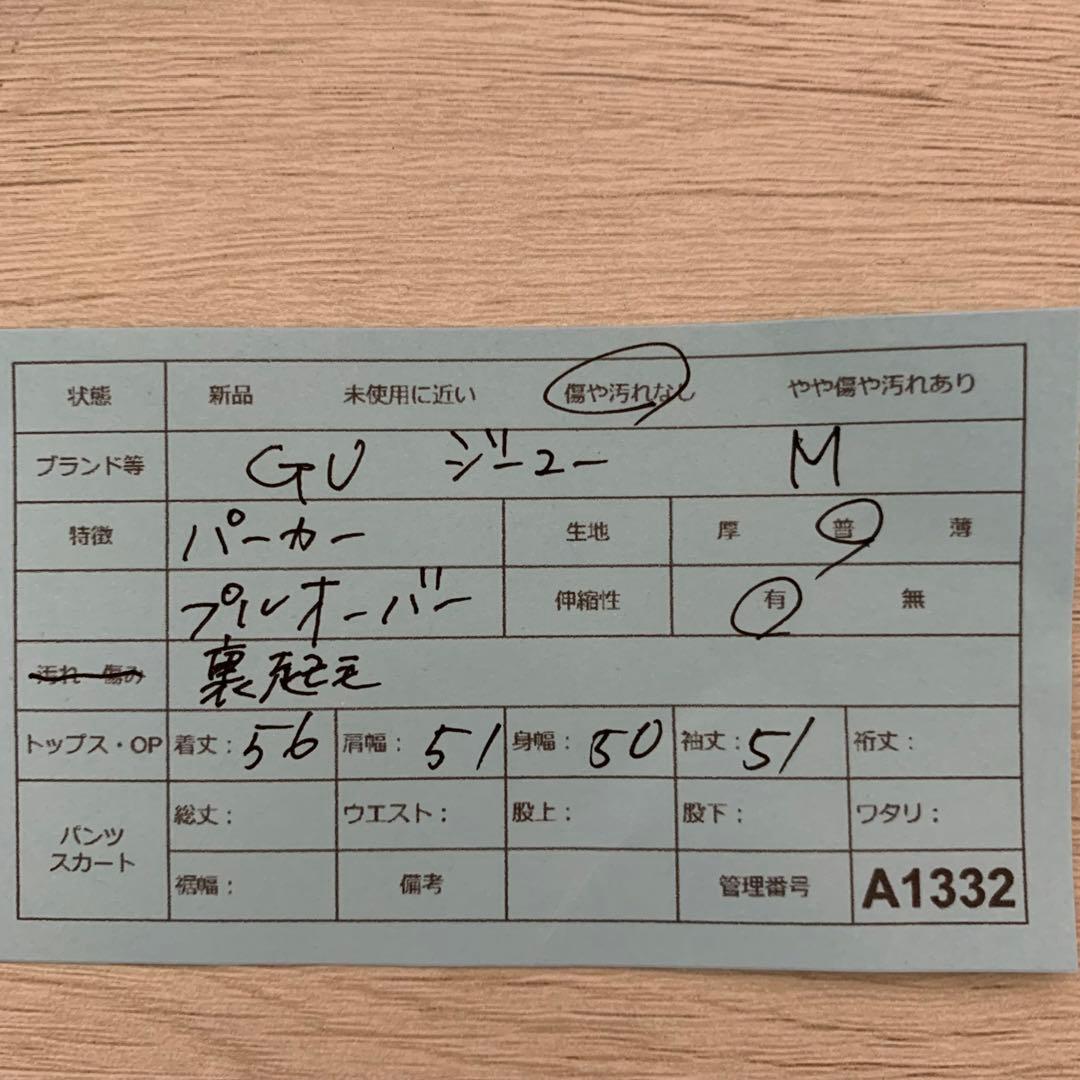 状態 新品 未使用に近い 傷や汚れなし やや傷や汚れあり
ブランド等 GU ジーユー M
特徴 パーカー 生地 厚 普 薄
プルオーバー 伸縮性 有 無
汚れ・傷み 裏起毛
トップス・OP 着丈：56 肩幅：51 身幅：50 袖丈：51 裄丈：
パンツ スカート 総丈： ウエスト： 股上： 股下： ワタリ：
裾幅： 備考 管理番号 A1332